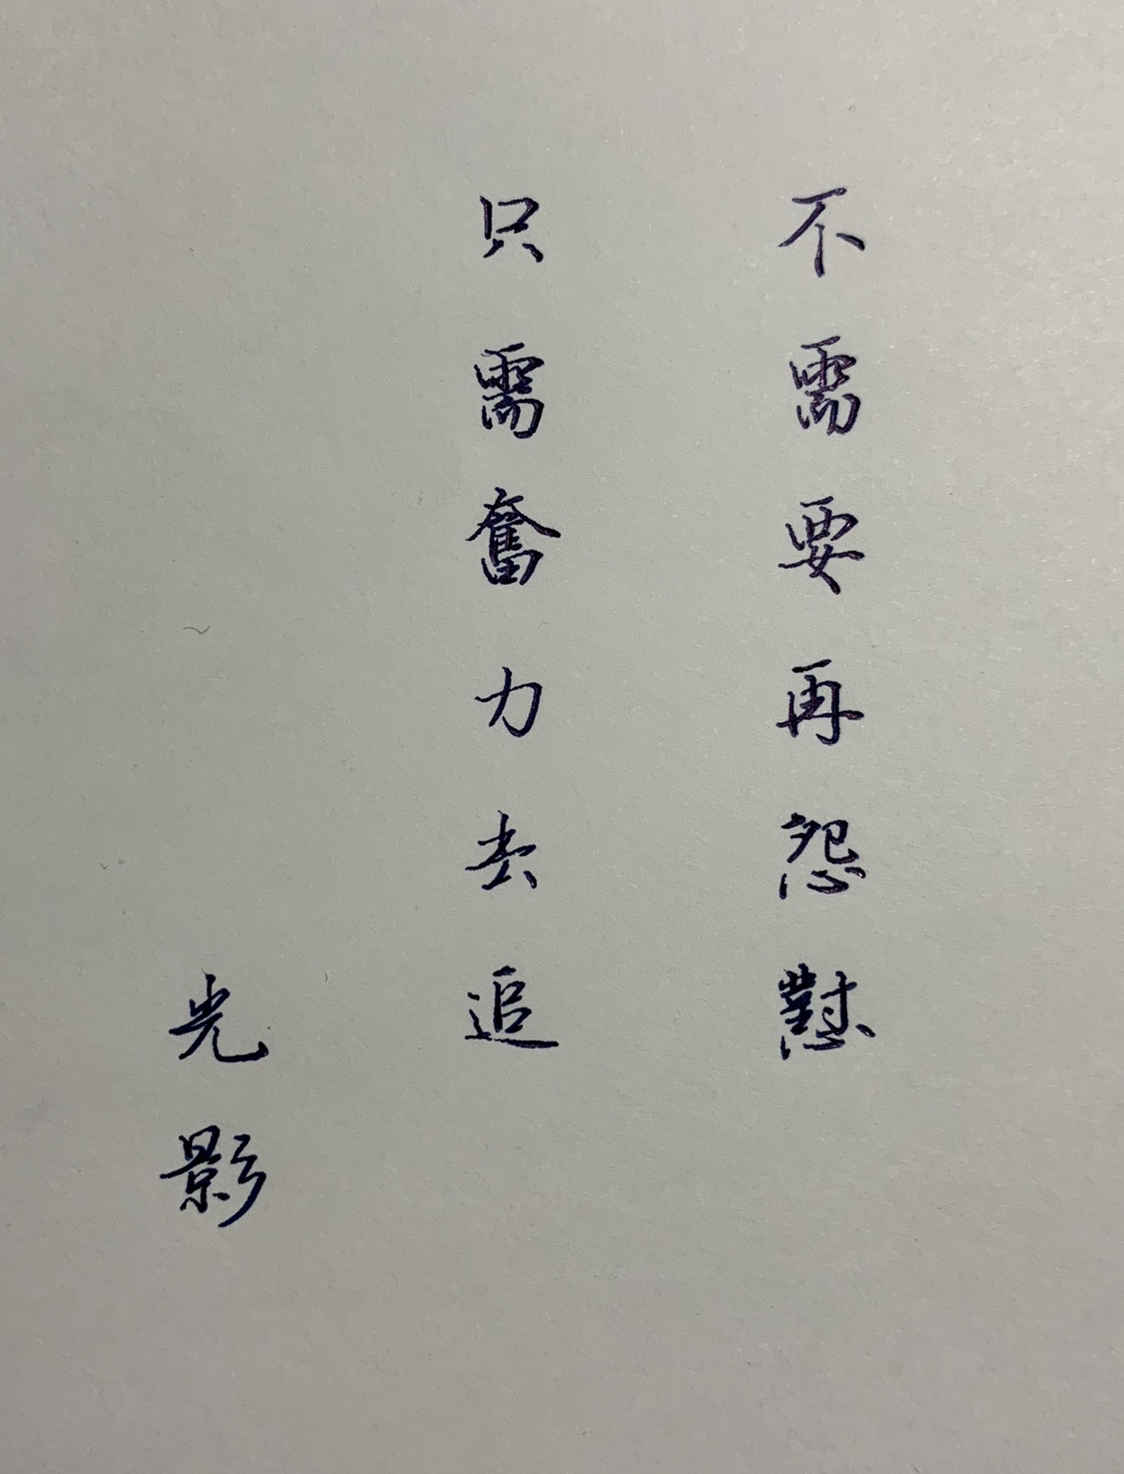 不需要再怨懟
只需奮力去追
光影